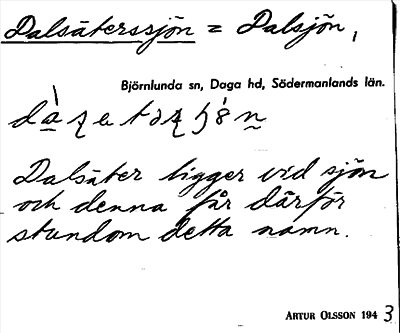 Dalsäterssjön = Dalsjön,
Björnlunda sn, Daga hd, Södermanlands län.
Dalsäter ligger vid sjön
och denna får därför
stundom detta namn.
ARTUR OLSSON 1943